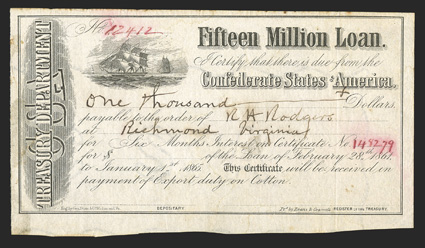 No 12412
TREASURY DEPARTMENT
Fifteen Million Loan.
I certify that there is due from the
Confederate States of America,
One thousand Dollars,
payable to the order of R H Rodgers
at Richmond Virginia
for Six Months Interest on Certificate No
for $ of the Loan of February 28, 1861,
to January 1st 1865 This Certificate will be received in
payment of Export duty on Cotton.
DEPOSITARY. Evans & Cogswell REGISTER OF THE TREASURY.